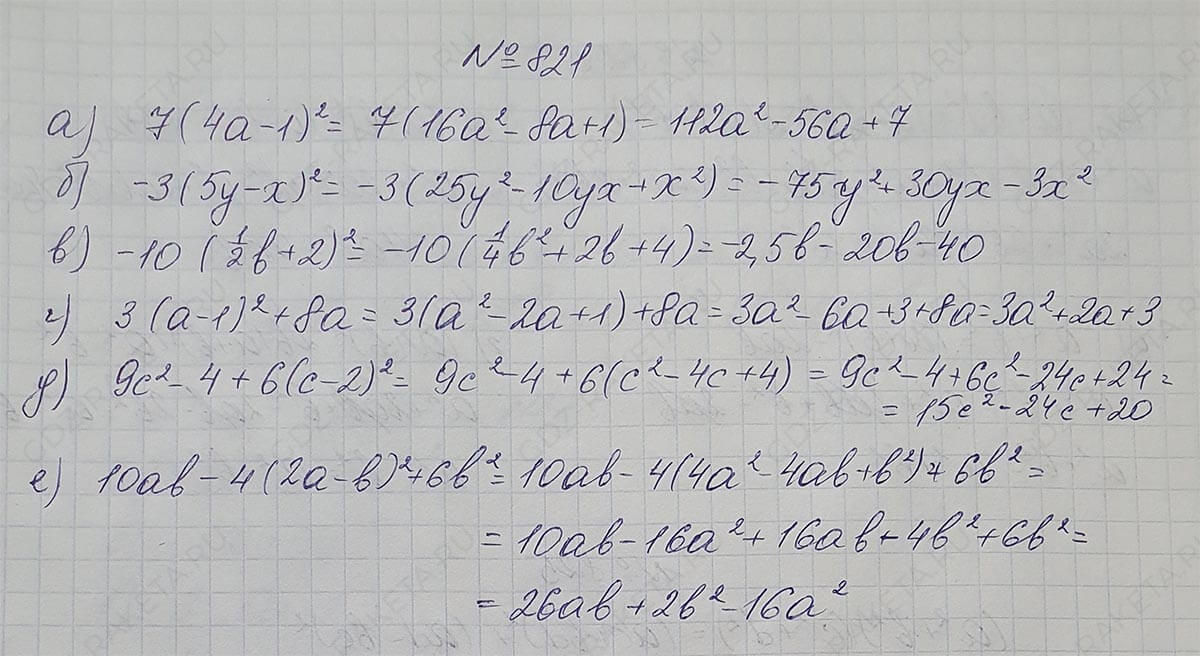 №821
а) 7(4a-1)²= 7(16a²-8a+1)=112a²-56a+7
б) -3(5y-x)²= -3(25y²-10yx+x²)=-75y²+30yx-3x²
в) -10(1/2b+2)²= -10(1/4b²+2b+4)=-2,5b-20b-40
г) 3(a-1)²+8a=3(a²-2a+1)+8a=3a²-6a+3+8a=3a²+2a+3
д) 9c²-4+6(c-2)²= 9c²-4+6(c²-4c+4)=9c²-4+6c²-24c+24=
=15c²-24c+20
е) 10ab-4(2a-b)²+6b²=10ab-4(4a²-4ab+b²)+6b²=
=10ab-16a²+16ab-4b²+6b²=
=26ab+2b²-16a²